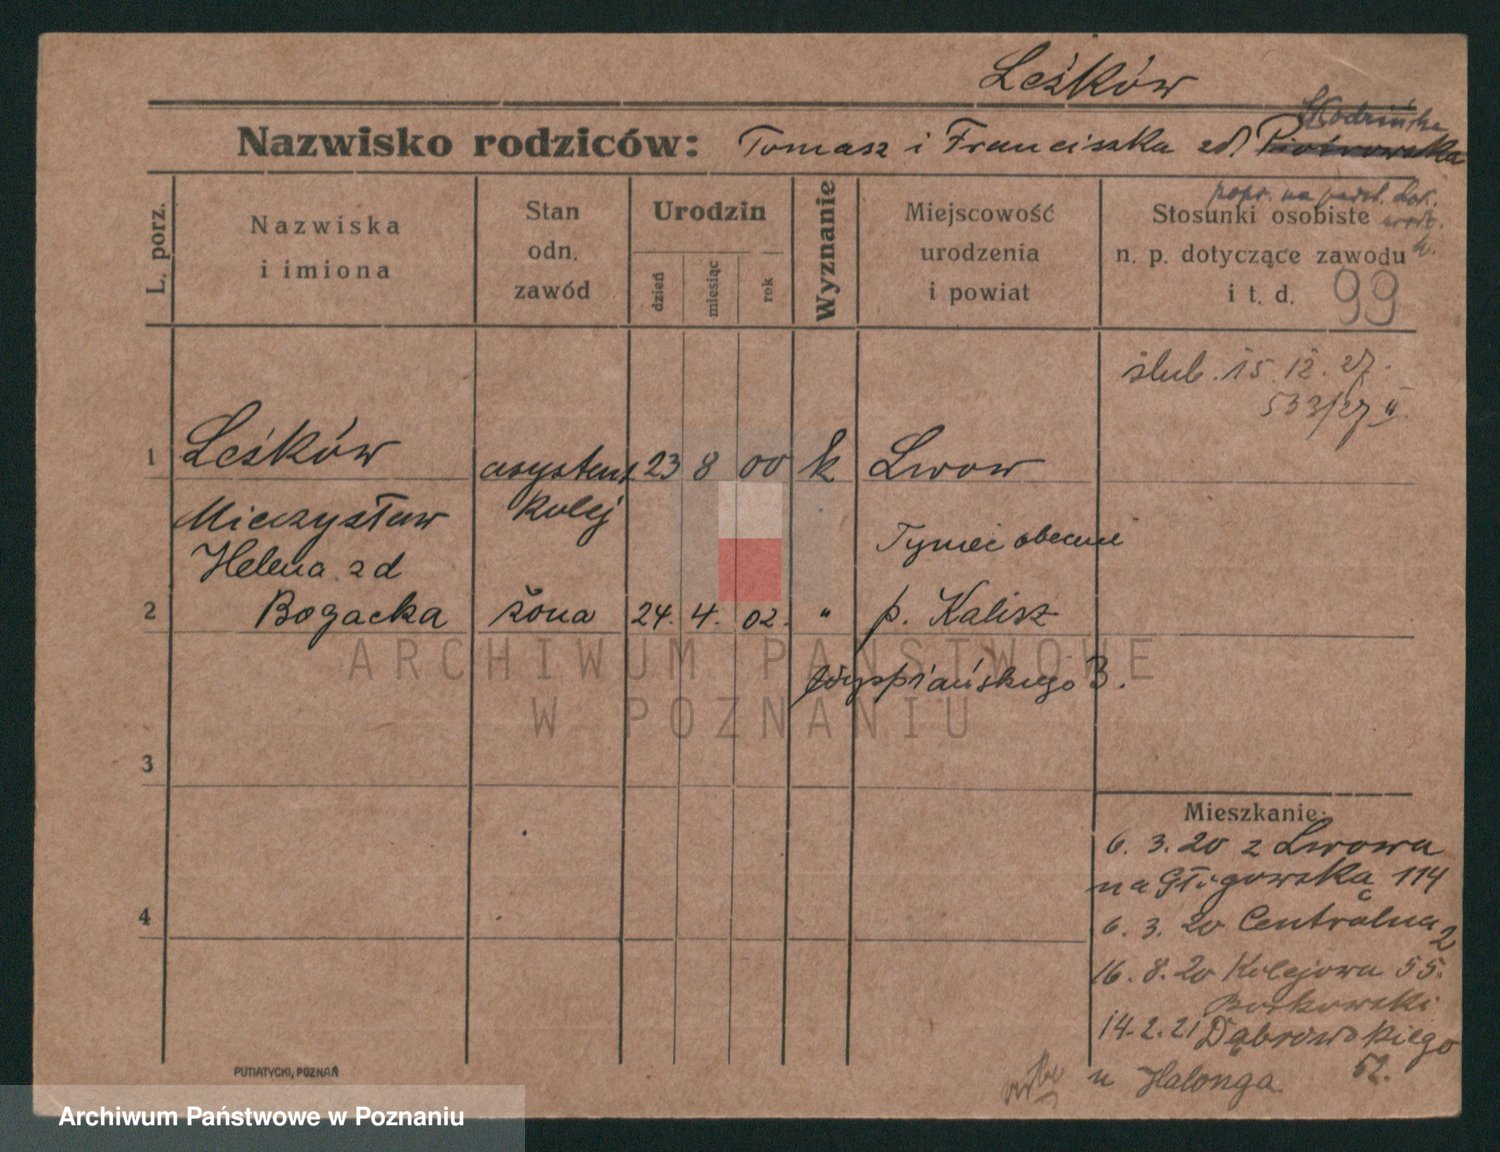 Leśków
Nazwisko rodziców: Tomasz i Franciszka zd. Piotrowska
popr. na
L. porz.
Nazwiska
i imiona
Stan
odn.
zawód
Urodzin
dzień
miesiąc
rok
Wyznanie
Miejscowość
urodzenia
i powiat
Stosunki osobiste
n. p. dotyczące zawodu
i t. d. 99
ślub. 15. 12. 27.
533/27 II.
1 Leśków asystent 23 8 00 k Lwow
Mieczysław kolej
Helena zd Tyniec obecnie
2 Bogacka żona 24. 4. 02. " p. Kalisz
Wyspiańskiego 3.
3
4
Mieszkanie:
6. 3. 20 z Lwowa
na Głogowską 114
6. 3. 20 Centralna 2
16. 8. 20 Kolejowa 55.
Borkowski
14. 2. 21 Dąbrowskiego
52.
u Halonga
PUTIATYCKI, POZNAŃ
ARCHIWUM PAŃSTWOWE
W POZNANIU
Archiwum Państwowe w Poznaniu